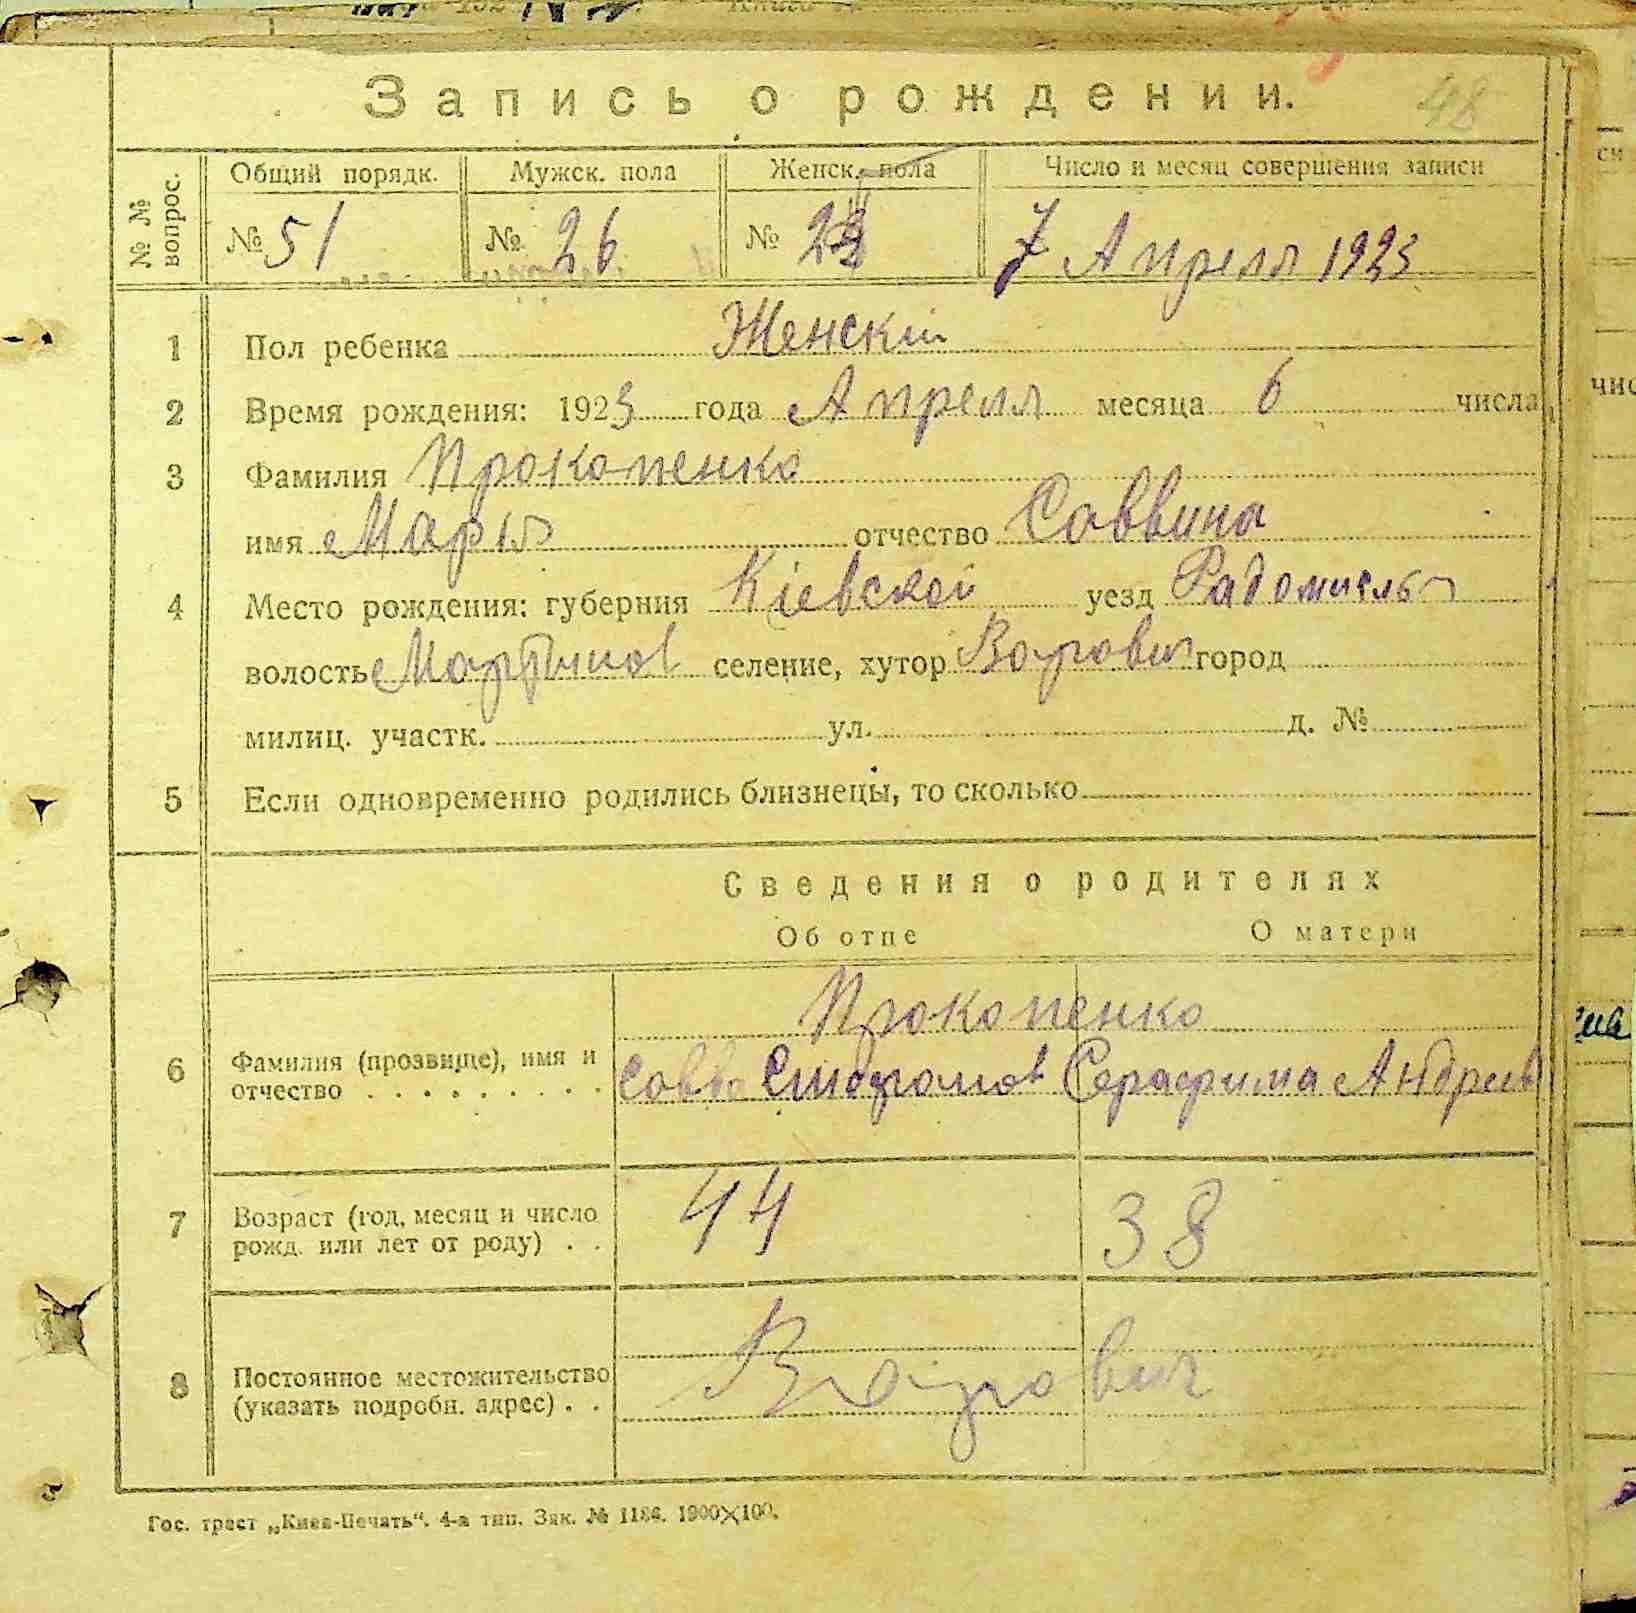 Запись о рождении.
48
№ № вопрос.
Общий порядк. Мужск. пола Женск. пола Число и месяц совершения записи
№ 51 № 26 № 7 Апреля 1923
1 Пол ребенка Женский
2 Время рождения: 1923 года Апреля месяца 6 числа
3 Фамилия Прокопенко
имя Мария отчество Саввина
4 Место рождения: губерния Кіевской уезд Радомисль
волость Мартинов селение, хутор Варович город
милиц. участк. ул. д. №
5 Если одновременно родились близнецы, то сколько
Сведения о родителях
Об отце О матери
Прокопенко
6 Фамилия (прозвище), имя и
отчество . . . . . . . . . Савва Серафима Андреев
7 Возраст (год, месяц и число
рожд. или лет от роду) . . 44 38
8 Постоянное местожительство
(указать подробн. адрес) . . Варович
Гос. трест „Киев-Печать“. 4-а тип. Зак. № 1186. 1900×100.